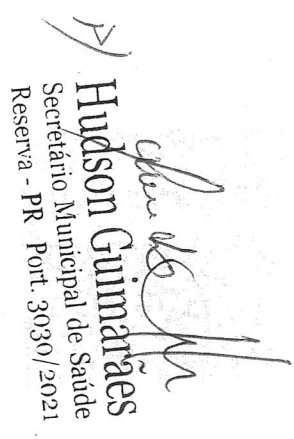 p/
Hudson Guimarães
Secretário Municipal de Saúde
Reserva - PR Port. 3030/2021